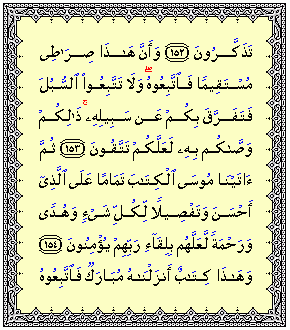 تَذَكَّرُونَ ١٥٢ وَأَنَّ هَـٰذَا صِرَٰطِى
مُسْتَقِيمًا فَٱتَّبِعُوهُ ۖ وَلَا تَتَّبِعُوا۟ ٱلسُّبُلَ
فَتَفَرَّقَ بِكُمْ عَن سَبِيلِهِۦ ۚ ذَٰلِكُمْ
وَصَّىٰكُم بِهِۦ لَعَلَّكُمْ تَتَّقُونَ ١٥٣ ثُمَّ
ءَاتَيْنَا مُوسَى ٱلْكِتَـٰبَ تَمَامًا عَلَى ٱلَّذِىٓ
أَحْسَنَ وَتَفْصِيلًا لِّكُلِّ شَىْءٍ وَهُدًى
وَرَحْمَةً لَّعَلَّهُم بِلِقَآءِ رَبِّهِمْ يُؤْمِنُونَ ١٥٤
وَهَـٰذَا كِتَـٰبٌ أَنزَلْنَـٰهُ مُبَارَكٌ فَٱتَّبِعُوهُ